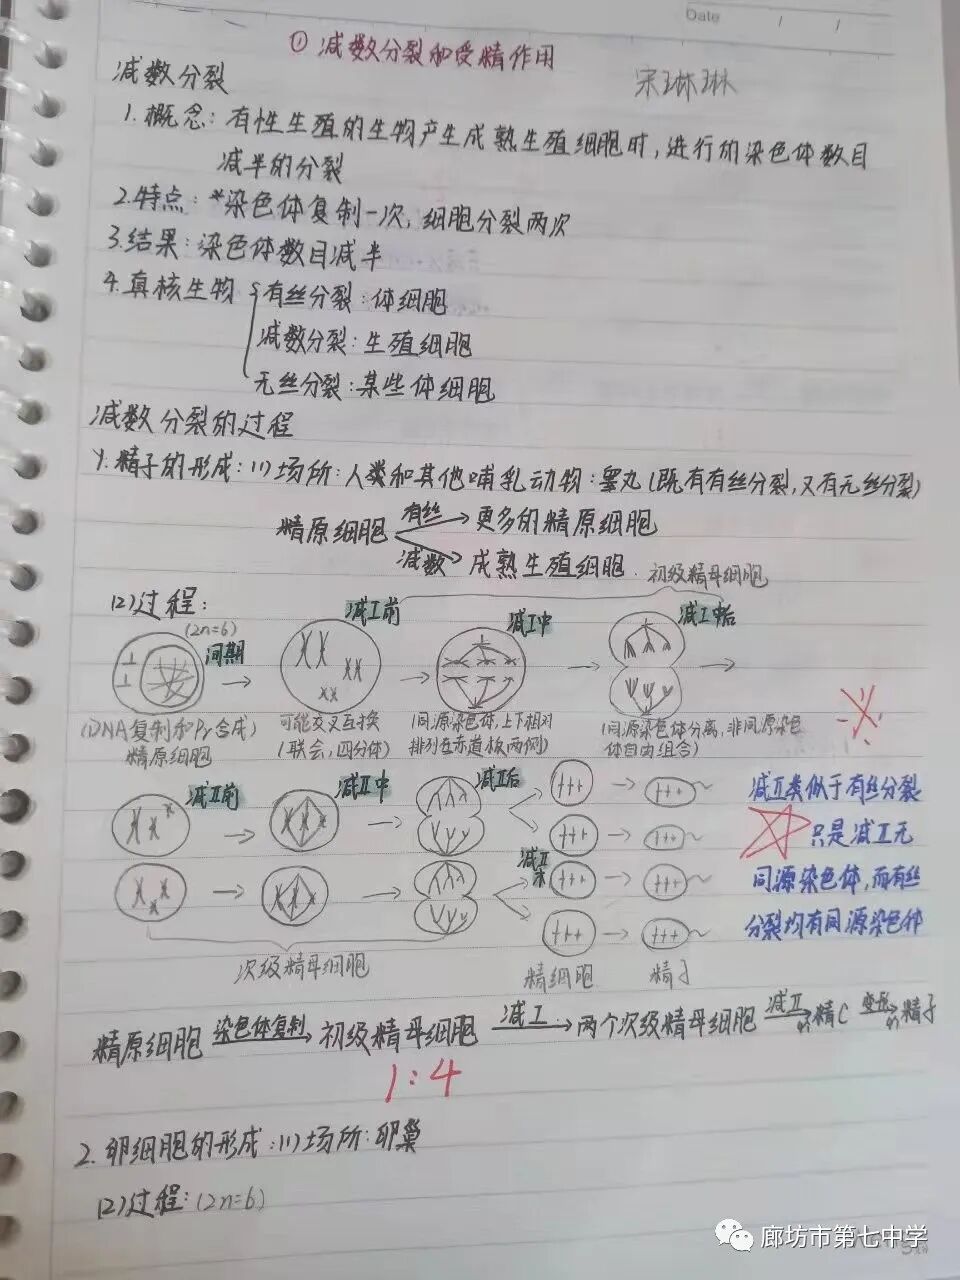 Date / /
① 减数分裂和受精作用
宋琳琳
减数分裂
1. 概念：有性生殖的生物产生成熟生殖细胞时，进行的染色体数目
减半的分裂
2. 特点：*染色体复制一次，细胞分裂两次
3. 结果：染色体数目减半
4. 真核生物 有丝分裂：体细胞
减数分裂：生殖细胞
无丝分裂：某些体细胞
减数分裂的过程
1. 精子的形成：(1)场所：人类和其他哺乳动物：睾丸(既有有丝分裂，又有无丝分裂)
精原细胞 有丝→更多的精原细胞
减数→成熟生殖细胞
初级精母细胞
(2)过程：
(2n=6) 间期 减I前 减I中 减I后
(DNA复制和Pr合成) 可能交叉互换 (同源染色体，上下相对 (同源染色体分离，非同源染色
精原细胞 (联会，四分体) 排列在赤道板两侧) 体自由组合)
减II前 减II中 减II后 减II末
减II类似于有丝分裂
只是减II无
同源染色体，而有丝
分裂均有同源染色体
次级精母细胞 精细胞 精子
精原细胞 染色体复制→初级精母细胞 减I→两个次级精母细胞 减II→精C 变形→精子
1:4
2. 卵细胞的形成：(1)场所：卵巢
(2)过程：(2n=6)
廊坊市第七中学